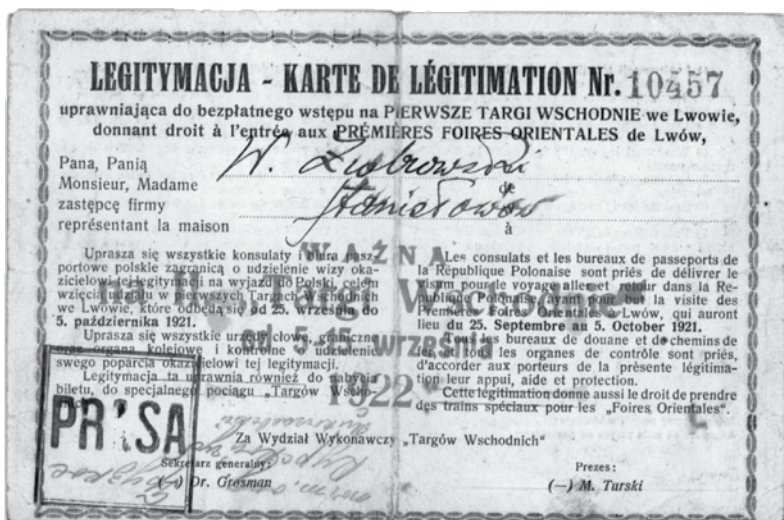 LEGITYMACJA - KARTE DE LÉGITIMATION Nr. 10457
uprawniająca do bezpłatnego wstępu na PIERWSZE TARGI WSCHODNIE we Lwowie,
donnant droit à l'entrée aux PREMIÈRES FOIRES ORIENTALES de Lwów,
Pana, Panią
Monsieur, Madame
W. Ziobrowski
de
zastępcę firmy
représentant la maison
Stanisławów
à
Uprasza się wszystkie konsulaty i biura pasz-
portowe polskie zagranicą o udzielenie wizy oka-
zicielowi tej legitymacji na wyjazd do Polski, celem
wzięcia udziału w pierwszych Targach Wschodnich
we Lwowie, które odbędą się od 25. września do
5. października 1921.
Uprasza się wszystkie urzędy cłowe, graniczne
oraz organa kolejowe i kontrolne o udzielenie
swego poparcia okazicielowi tej legitymacji.
Legitymacja ta uprawnia również do nabycia
biletu, do specjalnego pociągu „Targów Wscho-
Les consulats et les bureaux de passeports de
la République Polonaise sont priés de délivrer le
visum pour le voyage aller et retour dans la Re-
publique Polonaise, ayant pour but la visite des
Premières Foires Orientales de Lwów, qui auront
lieu du 25. Septembre au 5. October 1921.
Tous les bureaux de douane et de chemins de
fer, et tous les organes de contrôle sont priés,
d'accorder aux porteurs de la présente légitima-
tion leur appui, aide et protection.
Cette légitimation donne aussi le droit de prendre
des trains spéciaux pour les „Foires Orientales".
WAŻNA
na II. „Targi Wschodnie"
od 5-15 września
1922
PRASA
Za Wydział Wykonawczy „Targów Wschodnich"
Sekretarz generalny:
(—) Dr. Grosman
Prezes:
(—) M. Turski